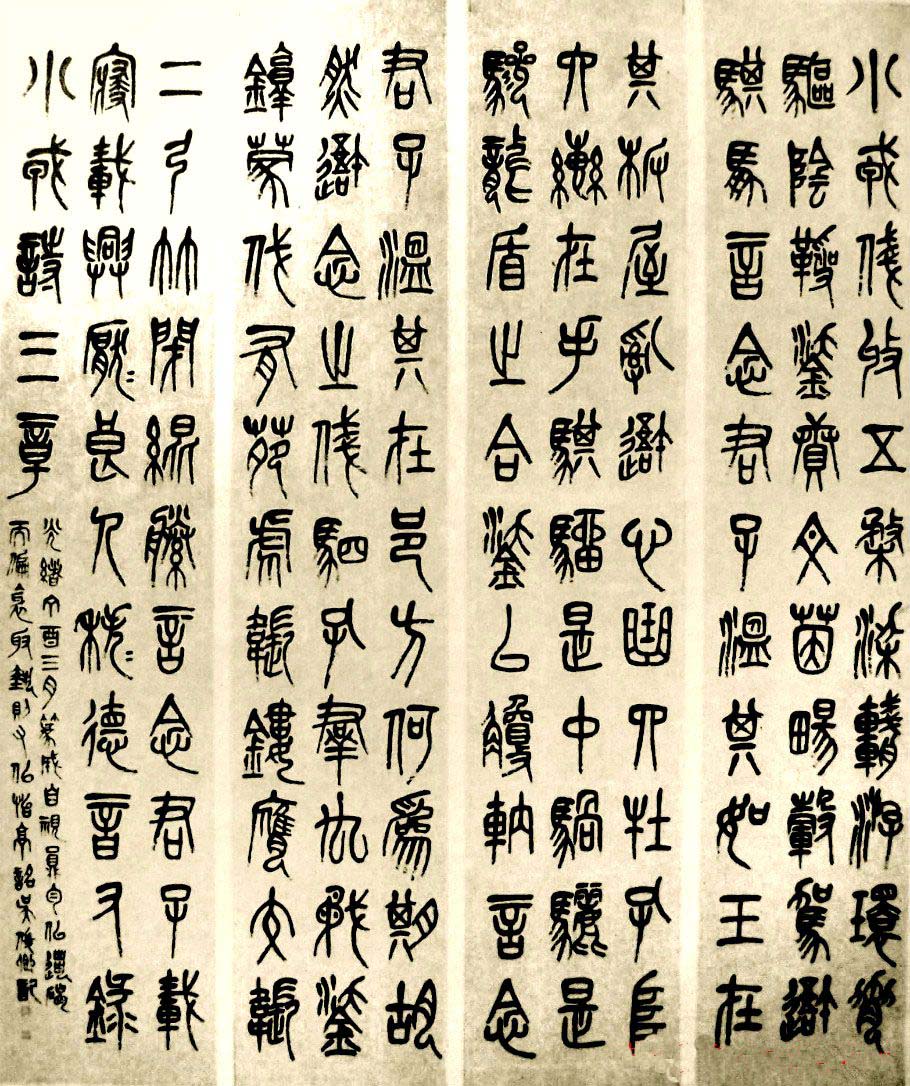 小戎俴收五楘梁輈游環脅
驅陰靷鋈續文茵暢轂駕我
騏馵言念君子溫其如玉在
其板屋亂我心曲四牡孔阜
六轡在手騏騮是中騧驪是
驂龍盾之合鋈以觼軜言念
君子溫其在邑方何為期胡
然我念之俴駟孔群厹矛鋈
錞蒙伐有苑虎韔鏤膺交韔
二弓竹閉緄縢言念君子載
寢載興厭〻良人秩〻德音又錄
小戎詩三章
光緒丁酉三月篆成自視
吳俊卿記